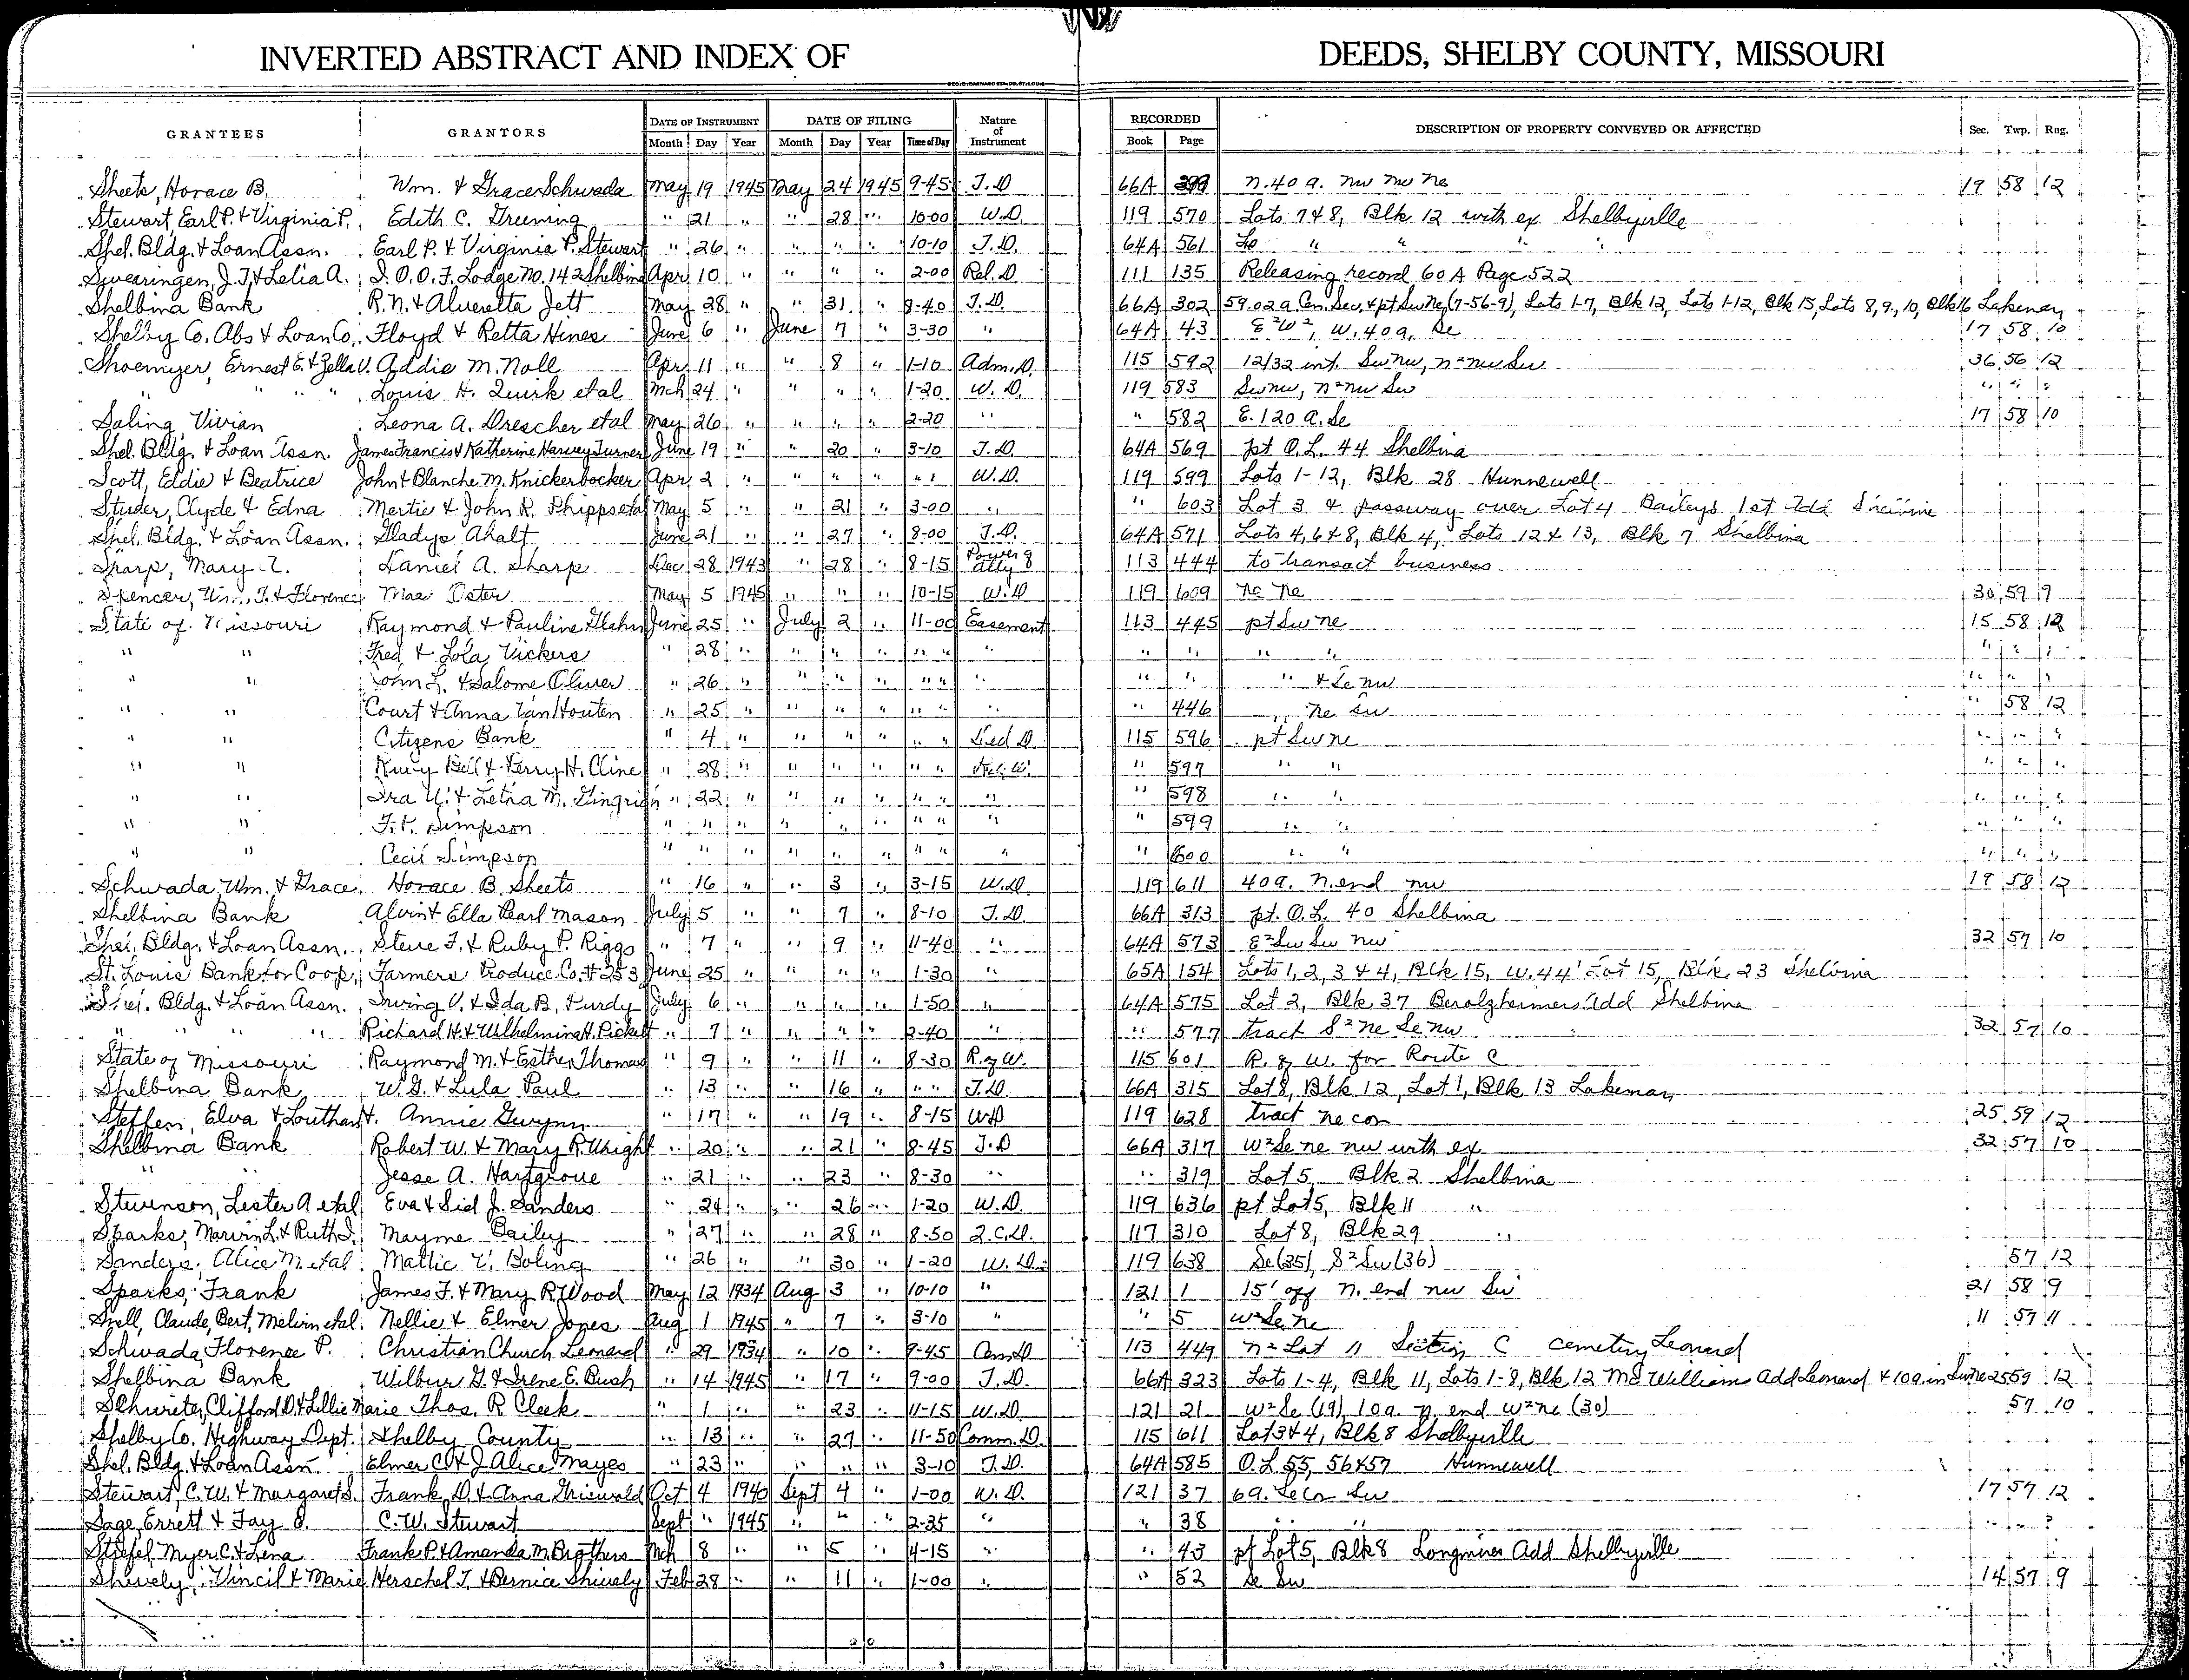 INVERTED ABSTRACT AND INDEX OF DEEDS, SHELBY COUNTY, MISSOURI
GEO. D. BARNARD STA. CO. ST. LOUIS
GRANTEES GRANTORS DATE OF INSTRUMENT DATE OF FILING Nature of Instrument RECORDED DESCRIPTION OF PROPERTY CONVEYED OR AFFECTED Sec. Twp. Rng.
Month Day Year Month Day Year Time of Day Book Page
Sheets, Horace B. Wm. & Grace Schwada May 19 1945 May 24 1945 9-45 T.D 66A n. 40 a. nw nw ne 19 58 12
Stewart, Earl P. & Virginia P. Edith C. Greening " 21 " " 28 " 10-00 W.D. 119 570 Lots 7 & 8, Blk 12 with ex Shelbyville
Shel. Bldg. & Loan Assn. Earl P. & Virginia P. Stewart " 26 " " " " 10-10 T.D. 64A 561 Lo " " " "
Swearingen, J.T. & Lelia A. I.O.O.F. Lodge No. 142 Shelbina Apr 10 " " " " 2-00 Rel. D 111 135 Releasing record 60A Page 522
Shelbina Bank R.N. & Alveretta Jett May 28 " " 31 " 8-40 T.D. 66A 302 59.02 a. Cen. Sec. & pt Sw Ne, (7-56-9), Lots 1-7, Blk 12, Lots 1-12, Blk 15, Lots 8, 9, 10, Blk 16 Lakenan
Shelby Co. Abs & Loan Co. Floyd & Retta Hines June 6 " June 7 " 3-30 " 64A 43 E²W², W. 40 a, Se 17 58 10
Shoemyer, Ernest E. & Zella V. Addie M. Noll Apr 11 " " 8 " 1-10 Adm. D. 115 592 12/32 int. Sw nw, n² nw Sw 36 56 12
" " " " Louis H. Quirk etal Mch 24 " " " " 1-20 W.D. 119 583 Sw nw, n² nw Sw " " "
Saling, Vivian Leona A. Drescher etal May 26 " " " " 2-20 " " 582 E. 120 a. Se 17 58 10
Shel. Bldg. & Loan Assn. James Francis & Katherine Harvey Turner June 19 " " 20 " 3-10 T.D. 64A 569 pt O.L. 44 Shelbina
Scott, Eddie & Beatrice John & Blanche M. Knickerbocker Apr 2 " " " " " " W.D. 119 599 Lots 1-12, Blk 28 Hunnewell
Studer, Clyde & Edna Mertie & John R. Phipps etal May 5 " " 21 " 3-00 " " 603 Lot 3 & passway over Lot 4 Baileys 1st Add
Shel. Bldg. & Loan Assn. Gladys Ahalt June 21 " " 27 " 8-00 T.D. 64A 571 Lots 4, 6 & 8, Blk 4, Lots 12 & 13, Blk 7 Shelbina
Sharp, Mary A. Daniel A. Sharp Dec 28 1943 " 28 " 8-15 Power of Atty 113 444 to transact business
Spencer, Wm. T. & Florence Mae Oster May 5 1945 " " " 10-15 W.D 119 609 ne ne 30 59 9
State of Missouri Raymond & Pauline Glahn June 25 " July 2 " 11-00 Easement 113 445 pt Sw ne 15 58 12
" " Fred & Lola Vickers " 28 " " " " " " " " " " " " " "
" " John L. & Salome Oliver " 26 " " " " " " " " " " & Se nw " " "
" " Court & Anna Van Houten " 25 " " " " " " " " 446 " ne Sw " 58 12
" " Citizens Bank " 4 " " " " " " Qed D 115 596 pt Sw ne " " "
" " Perry H. Cline " 28 " " " " " " " 597 " " " " "
" " Ira & Letha M. Gingrich " 22 " " " " " " " " 598 " " " " "
" " Simpson " " " " " " " " " " 599 " " " " "
" " Cecil Simpson " " " " " " " " " " 600 " " " " "
Schwada, Wm. & Grace Horace B. Sheets " 16 " " 3 " 3-15 W.D. 119 611 40 a. n. end nw 19 58 12
Shelbina Bank Alvin & Ella Pearl Mason July 5 " " 7 " 8-10 T.D. 66A 313 pt. O.L. 40 Shelbina
Shel. Bldg. & Loan Assn. Steve F. & Ruby P. Riggs " 7 " " 9 " 11-40 " 64A 573 E² Sw Sw nw 32 57 10
St. Louis Bank for Coop. Farmers Produce Co. #253 June 25 " " " " 1-30 " 65A 154 Lots 1, 2, 3 & 4, Blk 15, W. 44' Lot 15, Blk 23 Shelbina
Shel. Bldg. & Loan Assn. Irving V. & Ida B. Purdy July 6 " " " " 1-50 " 64A 575 Lot 2, Blk 37 Berolzheimers Add Shelbina
" " " " Richard H. & Wilhelmina H. Pickett " 7 " " " " 2-40 " " 577 tract S² ne Se nw 32 57 10
State of Missouri Raymond M. & Esther Thomas " 9 " " 11 " 8-30 R. of W. 115 601 R. of W. for Route C
Shelbina Bank W.G. & Lula Paul " 13 " " 16 " " " T.D. 66A 315 Lot 8, Blk 12, Lot 1, Blk 13 Lakenan
Steffen, Elva & Louthan H. Annie Gwynn " 17 " " 19 " 8-15 WD 119 628 tract ne cor 25 59 12
Shelbina Bank Robert W. & Mary R. Wright " 20 " " 21 " 8-45 T.D 66A 317 W² Se ne nw with ex 32 57 10
" " Jesse A. Hartgrove " 21 " " 23 " 8-30 " " 319 Lot 5, Blk 2 Shelbina
Stevenson, Lester A etal Eva & Sid J. Sanders " 24 " " 26 " 1-20 W.D. 119 636 pt Lot 5, Blk 11 "
Sparks, Marvin L. & Ruth I. Mayme Bailey " 27 " " 28 " 8-50 Q.C.D. 117 310 Lot 8, Blk 29 "
Sanders, Alice M. etal Mattie V. Boling " 26 " " 30 " 1-20 W.D. 119 638 Se (35), S² Sw (36) 57 12
Sparks, Frank James F. & Mary R. Wood May 12 1934 Aug 3 " 10-10 " 121 1 15' off n. end nw Sw 21 58 9
Snell, Claude, Bert, Melvin etal. Nellie & Elmer Jones Aug 1 1945 " 7 " 3-10 " " 5 W² Se ne 11 57 11
Schwada, Florence P. Christian Church Leonard " 29 1934 " 10 " 9-45 Cem D 113 449 n² Lot 11 Section C cemetery Leonard
Shelbina Bank Wilbur G. & Irene E. Bush " 14 1945 " 17 " 9-00 T.D. 66A 323 Lots 1-4, Blk 11, Lots 1-8, Blk 12 McWilliams Add Leonard & 10a. in Sw ne 25 59 12
Schwieter, Clifford D. & Lillie Marie Thos. R. Cleek " 1 " " 23 " 11-15 W.D. 121 21 W² Se (19), 10 a. n. end W² ne (30) 57 10
Shelby Co. Highway Dept. Shelby County " 13 " " 27 " 11-50 Comm. D. 115 611 Lot 3 & 4, Blk 8 Shelbyville
Shel. Bldg. & Loan Assn. Elmer C. & J. Alice Mayes " 23 " " " " 3-10 T.D. 64A 585 O.L 55, 56 & 57 Hunnewell
Stewart, C.W. & Margaret S. Frank D. & Anna Griswold Oct 4 1940 Sept 4 " 1-00 W.D. 121 37 6 a. Se Cor Sw 17 57 12
Sage, Errett & Fay E. C.W. Stewart Sept " 1945 " " " 2-35 " " 38 " " " " "
Striefel, Myer C. & Lena Frank P. & Amanda M. Brothers Mch 8 " " 5 " 4-15 " " 43 pt Lot 5, Blk 8 Longmires Add Shelbyville
Shively, Vincil & Marie Herschel T. & Bernice Shively Feb 28 " " 11 " 1-00 " " 52 Se Sw 14 57 9